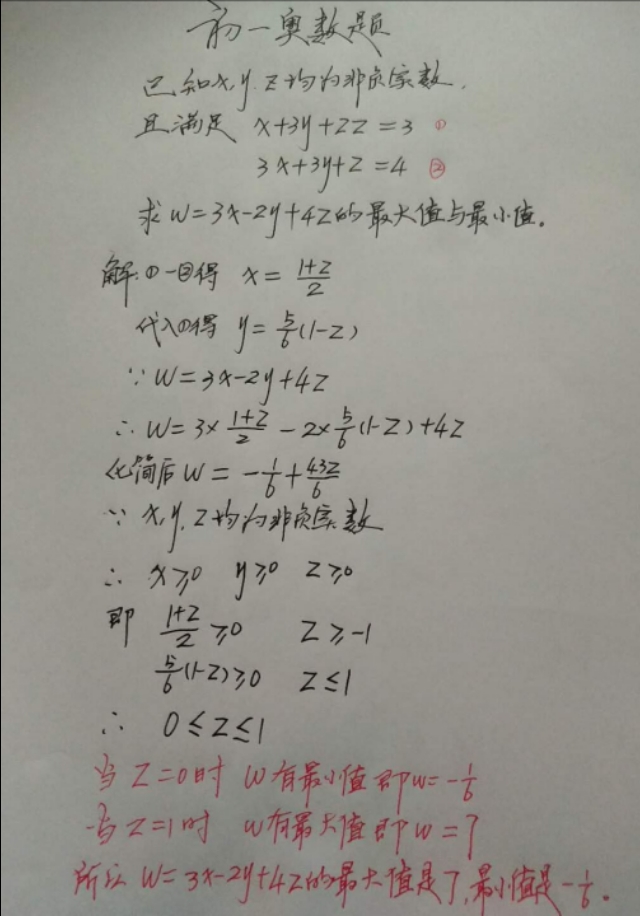 初一奥数题
已知x,y,z均为非负实数,
且满足 x+3y+2z=3 ①
3x+3y+z=4 ②
求w=3x-2y+4z的最大值与最小值。
解:①-②得 x=\frac{1+z}{2}
代入①得 y=\frac{5}{6}(1-z)
∵ w=3x-2y+4z
∴ w=3×\frac{1+z}{2}-2×\frac{5}{6}(1-z)+4z
化简后w=-\frac{1}{6}+\frac{43z}{6}
∵ x,y,z均为非负实数
∴ x≥0 y≥0 z≥0
即 \frac{1+z}{2}≥0 z≥-1
\frac{5}{6}(1-z)≥0 z≤1
∴ 0≤z≤1
当z=0时 w有最小值即w=-\frac{1}{6}
当z=1时 w有最大值即w=7
所以w=3x-2y+4z的最大值是7,最小值是-\frac{1}{6}。